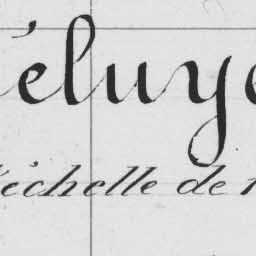 éluy
échelle de